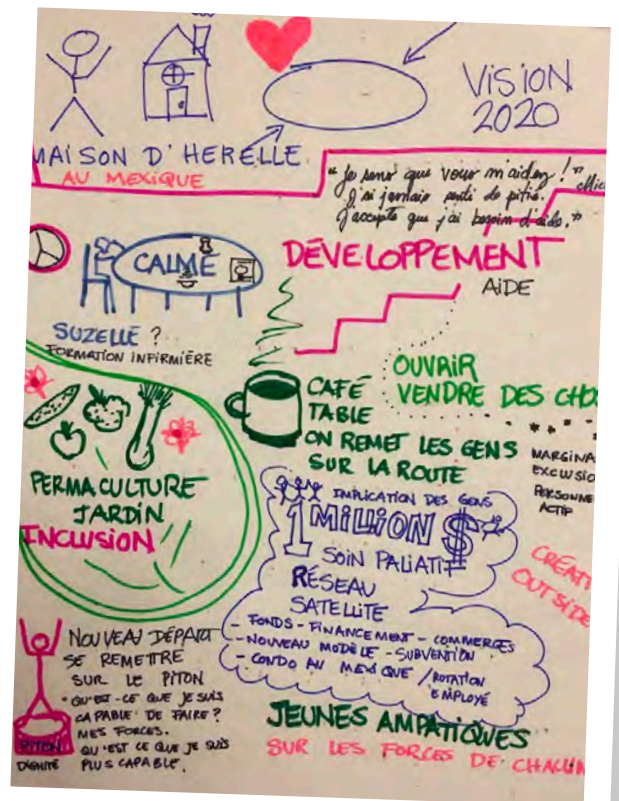 VISION
2020
MAISON D'HERELLE
AU MEXIQUE
"Je sens que vous m'aidez!"
J'ai jamais senti de pitié.
J'accepte que j'ai besoin d'aide."
CALME
DÉVELOPPEMENT
AIDE
SUZELLE ?
FORMATION INFIRMIÈRE
OUVRIR
VENDRE DES CHO
CAFÉ
TABLE
ON REMET LES GENS
SUR LA ROUTE
MARGINA
EXCLUSIO
PERSONNE
ACTIF
PERMACULTURE
JARDIN
INCLUSION
IMPLICATION DES GENS
1 MILLION $
SOIN PALIATIF
RÉSEAU
SATELLITE
- FONDS - FINANCEMENT - COMMERCES
- NOUVEAU MODÈLE - SUBVENTION
- CONDO AU MEXIQUE / ROTATION
EMPLOYÉ
CRÉAT
OUTSIDE
NOUVEAU DÉPART
SE REMETTRE
SUR LE PITON
"QU'EST-CE QUE JE SUIS
CAPABLE DE FAIRE?
MES FORCES.
QU'EST CE QUE JE SUIS
PLUS CAPABLE.
PITON
DIGNITÉ
JEUNES AMPATIQUES
SUR LES FORCES DE CHACUN